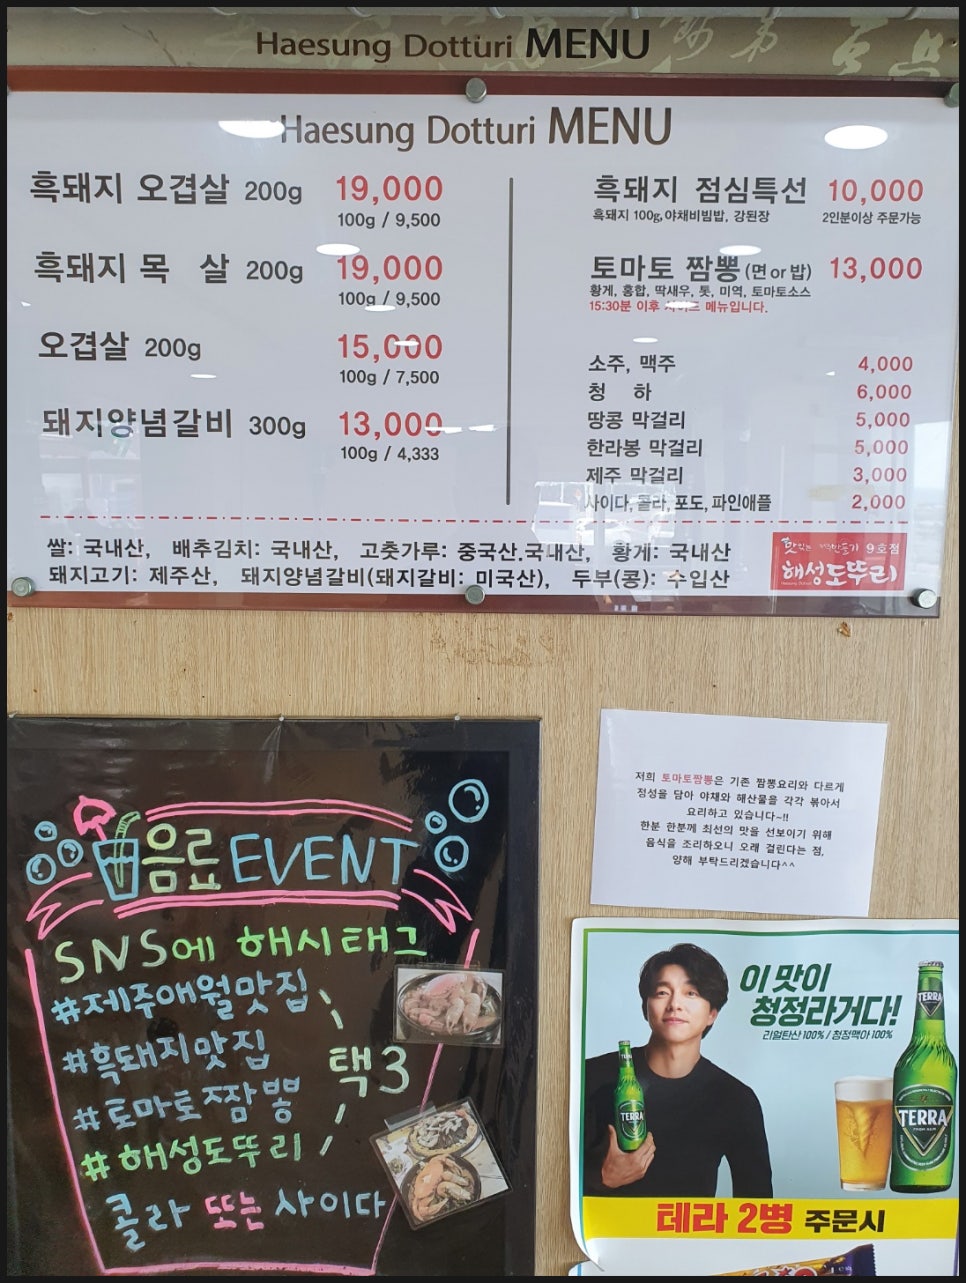 Haesung Dotturi MENU
Haesung Dotturi MENU
흑돼지 오겹살 200g 19,000
100g / 9,500
흑돼지 목 살 200g 19,000
100g / 9,500
오겹살 200g 15,000
100g / 7,500
돼지양념갈비 300g 13,000
100g / 4,333
흑돼지 점심특선 10,000
흑돼지 100g,야채비빔밥, 강된장 2인분이상 주문가능
토마토 짬뽕 (면 or 밥) 13,000
황게, 홍합, 딱새우, 톳, 미역, 토마토소스
15:30분 이후 사이드 메뉴입니다.
소주, 맥주 4,000
청 하 6,000
땅콩 막걸리 5,000
한라봉 막걸리 5,000
제주 막걸리 3,000
사이다, 콜라, 포도, 파인애플 2,000
쌀: 국내산, 배추김치: 국내산, 고춧가루: 중국산.국내산, 황게: 국내산
돼지고기: 제주산, 돼지양념갈비(돼지갈비: 미국산), 두부(콩): 수입산
맛있는 만들기 9호점
해성도뚜리
음료 EVENT
SNS에 해시태그
#제주애월맛집
#흑돼지맛집
#토마토짬뽕
#해성도뚜리
택3
콜라 또는 사이다
저희 토마토짬뽕은 기존 짬뽕요리와 다르게
정성을 담아 야채와 해산물을 각각 볶아서
요리하고 있습니다~!!
한분 한분께 최선의 맛을 선보이기 위해
음식을 조리하오니 오래 걸린다는 점,
양해 부탁드리겠습니다^^
이 맛이
청정라거다!
리얼탄산 100% / 청정맥아 100%
TERRA
TERRA
TERRA
테라 2병 주문시